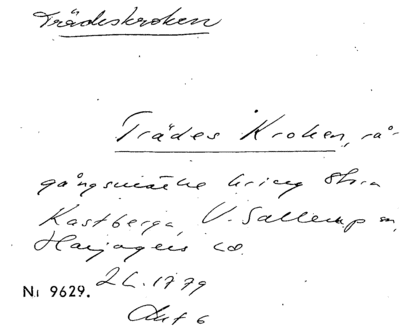 Trädeskroken
Trädes Kroken, rå-
gångsmärke kring Stora
Kastberga, V. Sallerup sn,
Harjagers hd.
LL. 1779
Ni 9629.
Akt 6